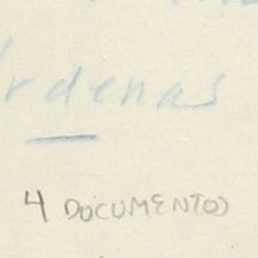 rdenas
4 DOCUMENTOS